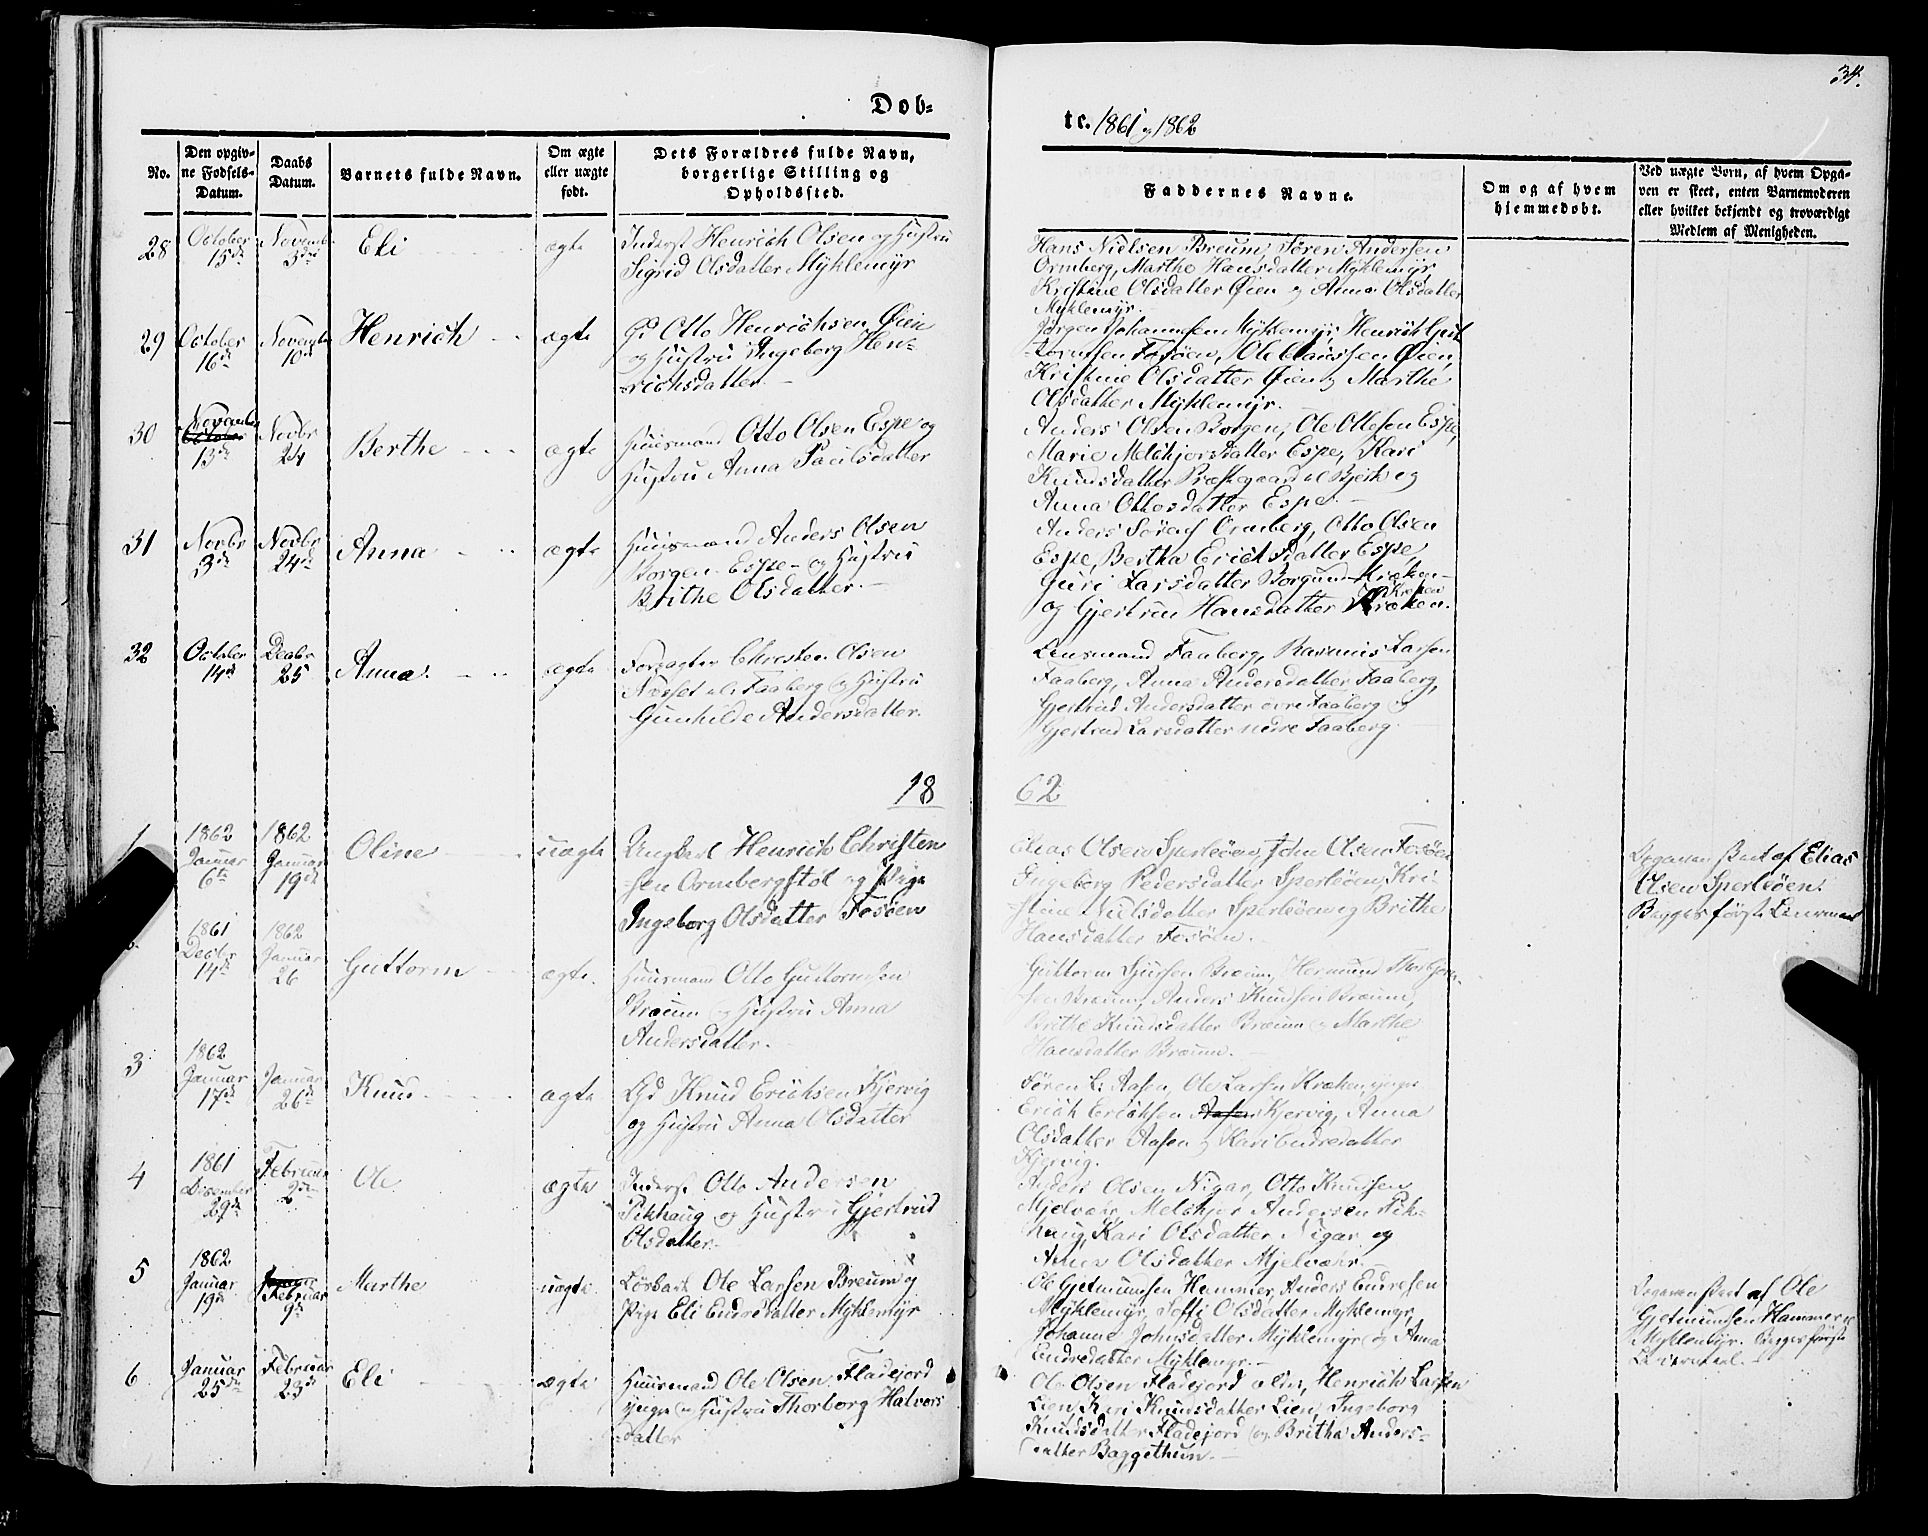 34.
Dob-
te. 1861 og 1862
No.
Den opgiv-
ne Fødsels-
Datum.
Daabs
Datum.
Barnets fulde Navn.
Om ægte
eller uægte
født.
Dets Forældres fulde Navn,
borgerlige Stilling og
Opholdssted.
Faddernes Navne.
Om og af hvem
hjemmedøbt.
Ved uægte Børn, af hvem Opga-
ven er skeet, enten Barnemoderen
eller hvilket bekjendt og troværdigt
Medlem af Menigheden.
28
October
15de
Novemb
3die
Eli
ægte
Inderst Henrich Olsen og Hustru
Sigrid Olsdatter Myklemyr
Hans Nielsen Breum, Søren Andersen
Ormberg, Marthe Hansdatter Myklemyr,
Kristine Olsdatter Øien og Anna Olsdatter
Myklemyr.
29
October
16de
November
10de
Henrich
ægte
Gd Otto Henrichsen Øien
og Hustru Ingeborg Hen-
richsdatter.
Jørgen Johannesen Myklemyr, Henrich Gut-
tormsen Fosøen, Ole Clausen Øien,
Kristine Olsdatter Øien og Marthe
Olsdatter Myklemyr.
30
November
October
13de
Novbr
24
Berthe
ægte
Huusmand Otto Olsen Espe og
Hustru Anna Poulsdatter
Anders Olsen Borgen, Ole Ottesen Espe,
Marie Melchjorsdatter Espe, Kari
Knudsdatter og
Anna Ottosdatter Espe.
31
Novbr
3de
Novbr
24de
Anna
ægte
Huusmand Anders Olsen
Borgen Espe og Hustru
Brithe Olsdatter.
Anders Ormberg, Otto Olsen
Espe, Bertha Erichsdatter Espe,
Guri Larsdatter Borgund
Kræken
og Gjertrud Hansdatter Kræken.
32
October
14de
Decbr
25
Anna.
ægte
Forpagter Christen Olsen
Faaberg og Hustru
Gunhilde Andersdatter.
Lensmand Faaberg, Rasmus Larsen
Faaberg, Anna Andersdatter Faaberg,
Gjertrud Andersdatter øvre Faaberg og
Gjertrud Larsdatter nedre Faaberg
18
62
1
1862
Januar
6te
1862
Januar
19de
Oline
uægte
Ungkarl Henrich Christen
sen Ormbergstøl og Pige
Ingeborg Olsdatter Fosøen
Elias Olsen Sperleøen, John Olsen Fosøen
Ingeborg Pedersdatter Sperleøen, Kri-
stine Nielsdatter Sperleøen og Brithe
Hansdatter Fosøen.
Opgaven skeet af Elias
Olsen Sperleøen.
Begges første Leiermaal
1861
Decbr
14de
1862
Januar
26
Guttorm
ægte.
Huusmand Otto Guttormsen
Bræum og Hustru Anna
Andersdatter.
Guttorm Bræum, Hermund
Bræum, Anders Knudsen Bræum,
Brithe Knudsdatter Bræum og Marthe
Hansdatter Bræum.
3
1862
Januar
17de
Januar
26de
Knud
ægte
Gd Knud Erichsen Kjervig
og Hustru Anna Olsdatter
Søren L. Aasen, Ole Larsen Kræken yngre
Erich Erichsen Aasen Kjervig, Anna
Olsdatter Aasen og Kari Endredatter
Kjervig.
4
1861
December
29de
Februar
2den
Ole
ægte
Inderst Otto Andersen
Pikhaug og Hustru Gjertrud
Olsdatter.
Anders Olsen Nigar, Otto Knudsen
Mjelvær, Melchjor Andersen Pik-
haug, Kari Olsdatter Nigar og
Anna Olsdatter Mjelvær.
5
1862
Januar
19de
Januar
Februar
9de
Marthe
uægte
Løskarl Ole Larsen Breum og
Pige Eli Endredatter Myklemyr
Ole Gjetmundsen Hammer, Anders Endresen
Myklemyr, Joffi Olsdatter Myklemyr,
Johanne Johnsdatter Myklemyr og Anna
Endredatter Myklemyr.
Opgaven skeet af Ole
Gjetmundsen Hammer
Myklemyr. Begges første
Leiermaal.
6
Januar
25de
Februar
23de
Eli
ægte
Huusmand Ole Olsen Fladejord
yngre og Hustru Thorborg Halvors-
datter
Ole Olsen Fladejord ældre, Henrich Larsen
Lien, Kari Knudsdatter Lien, Ingeborg
Knudsdatter Fladejord og Brithe Anders-
datter Baggethun.